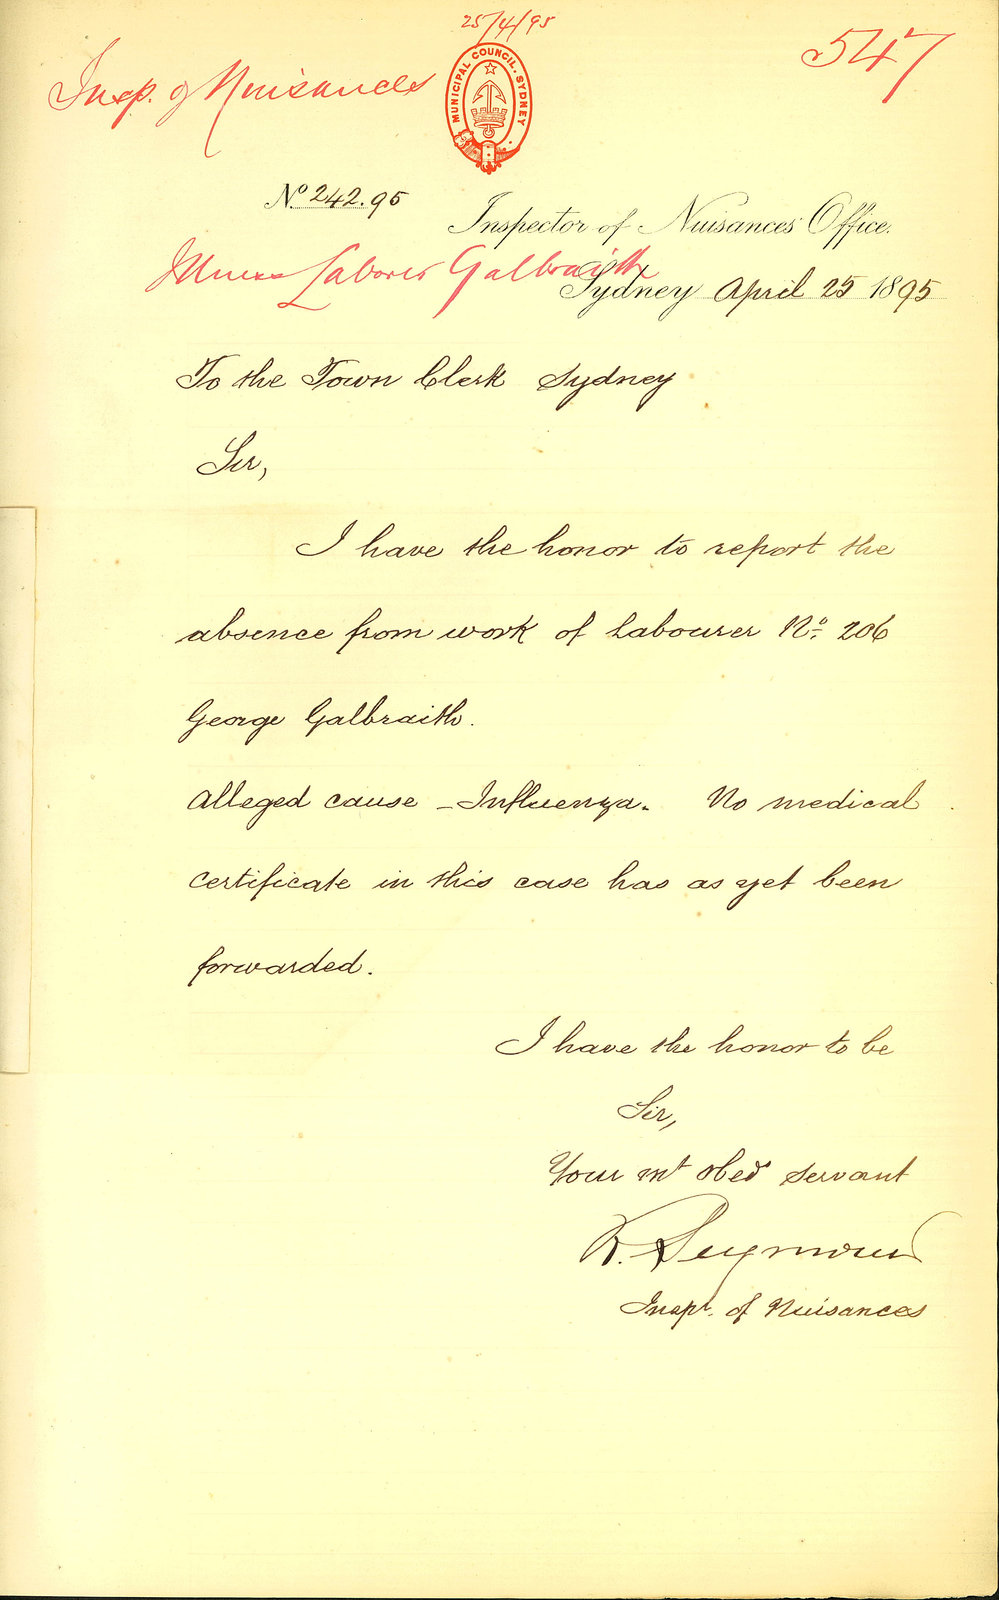 25/4/95
547
Insp. of Nuisances
MUNICIPAL COUNCIL. SYDNEY
No 242.95
Inspector of Nuisances Office.
Illness Laborer Galbraith
Sydney April 25 1895
To the Town Clerk Sydney
Sir,
I have the honor to report the
absence from work of Labourer No. 206
George Galbraith.
Alleged cause - Influenza. No medical
certificate in this case has as yet been
forwarded.
I have the honor to be
Sir,
Your mt obed servant
R. Seymour
Inspr. of Nuisances